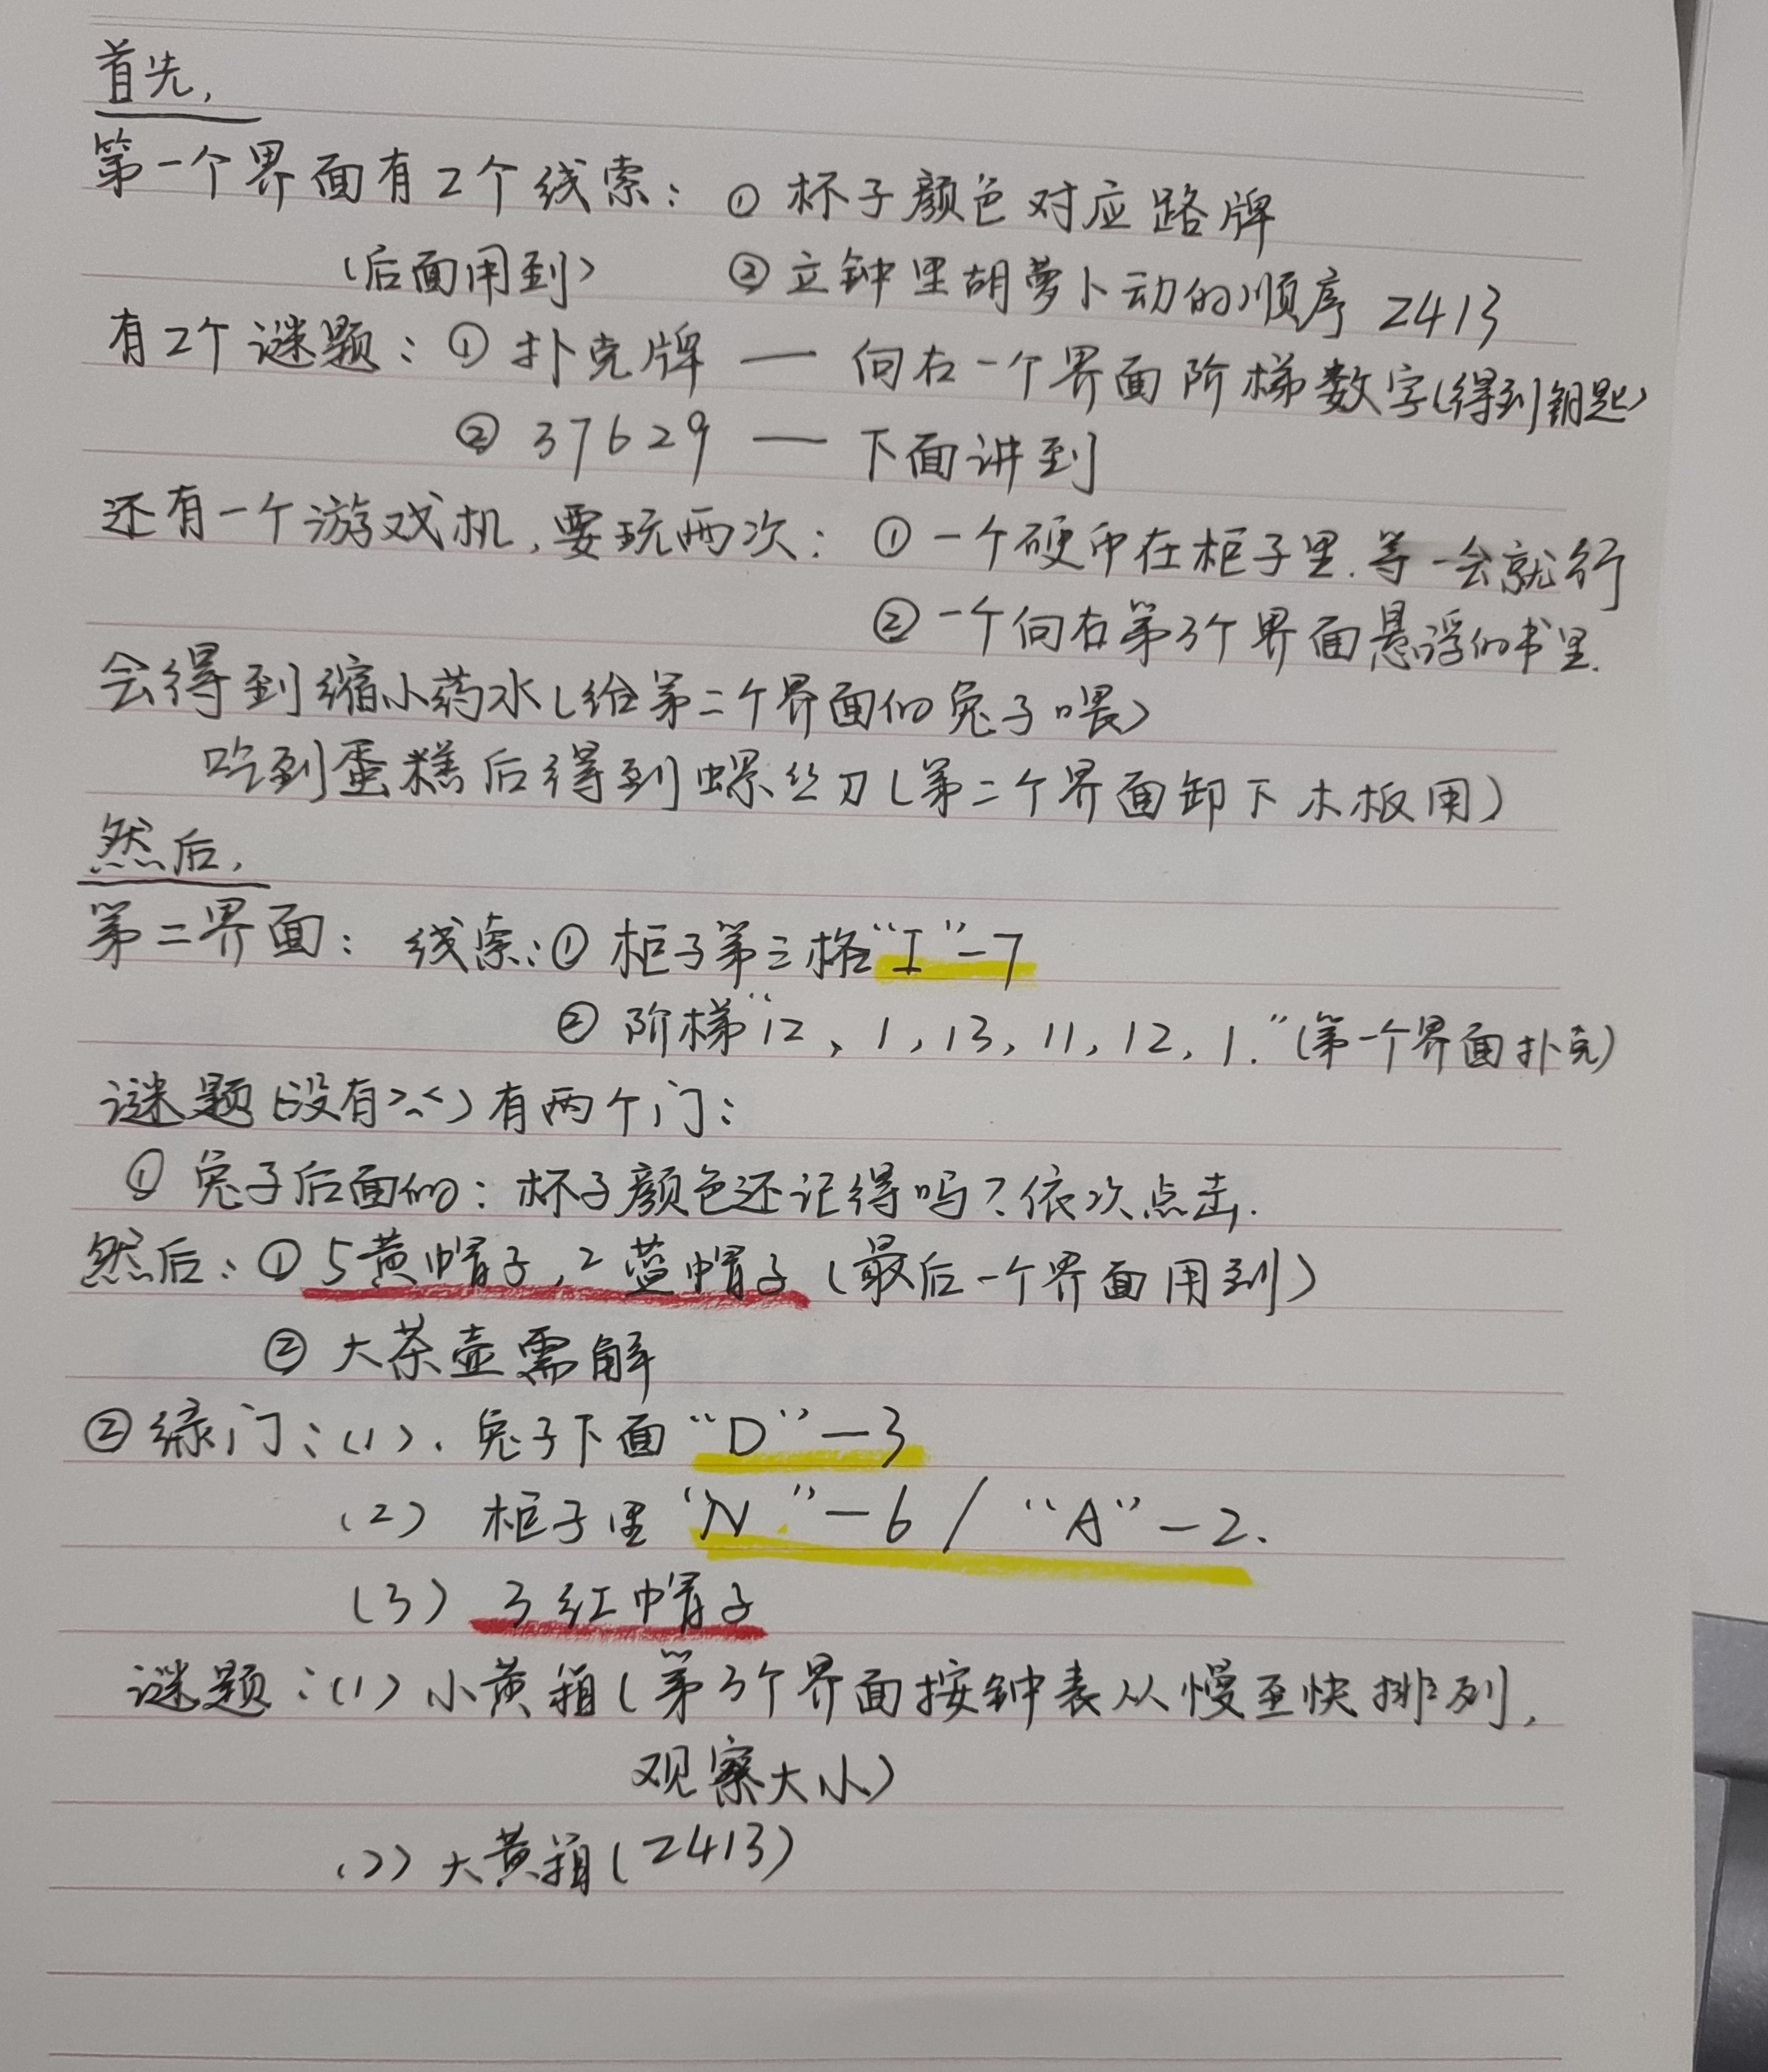 首先,
第一个界面有2个线索: ① 杯子颜色对应路牌
(后面用到) ② 立钟里胡萝卜动的顺序 2413
有2个谜题: ① 扑克牌 — 向右一个界面阶梯数字(得到钥匙)
② 37629 — 下面讲到
还有一个游戏机,要玩两次: ① 一个硬币在柜子里.等一会就行
② 一个向右第3个界面悬浮的书里.
会得到缩小药水(给第二个界面的兔子喂)
吃到蛋糕后得到螺丝刀(第二个界面卸下木板用)
然后,
第二界面: 线索:① 柜子第三格“I”-7
② 阶梯“12、1,13,11,12,1.”(第一个界面扑克)
谜题(没有>.<)有两个门:
① 兔子后面的: 杯子颜色还记得吗?依次点击.
然后:① 5黄帽子,2蓝帽子(最后一个界面用到)
② 大茶壶需解
② 绿门:(1). 兔子下面“D”—3
(2) 柜子里“N”—6 / “A”—2.
(3) 3红帽子
谜题:(1) 小黄箱(第3个界面按钟表从慢至快排列,
观察大小)
(2) 大黄箱(2413)